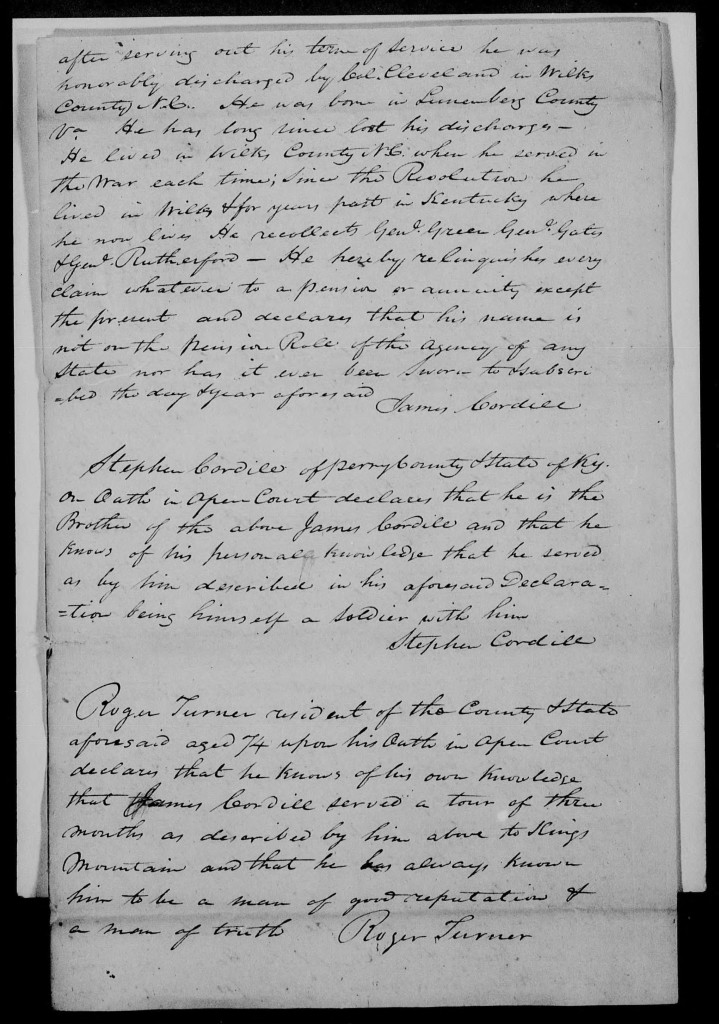 after serving out his term of service he was
honorably discharged by Col. Cleveland in Wilks
County N.C. He was born in Lunenberg County
Va He has long since lost his discharges -
He lived in Wilks County N.C. when he served in
the War each time; Since the Revolution he
lived in Wilks & for years past in Kentucky where
he now lives He recollects Genl. Green Genl. Gates
& Genl. Rutherford - He hereby relinquishes every
claim whatever to a pension or annuity except
the present and declares that his name is
not on the Pension Role of the Agency of any
State nor has it ever been Sworn to & subscri
-bed the day & year aforesaid
James Cordill
Stephen Cordill of Perry County & State of Ky.
On Oath in Open Court declares that he is the
Brother of the above James Cordill and that he
knows of his personal knowledge that he served
as by him described in his aforesaid Declara=
=tion being himself a soldier with him
Stephen Cordill
Roger Turner resident of the County & State
aforesaid aged 74 upon his Oath in Open Court
declares that he knows of his own knowledge
that James Cordill served a tour of three
months as described by him above to Kings
Mountain and that he has always known
him to be a man of good reputation &
a man of truth Roger Turner